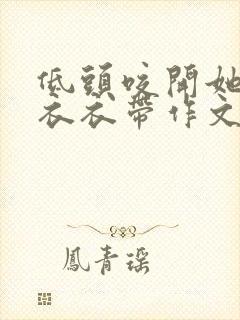 低頭咬開她
衣衣帶作文
鳳青瑶